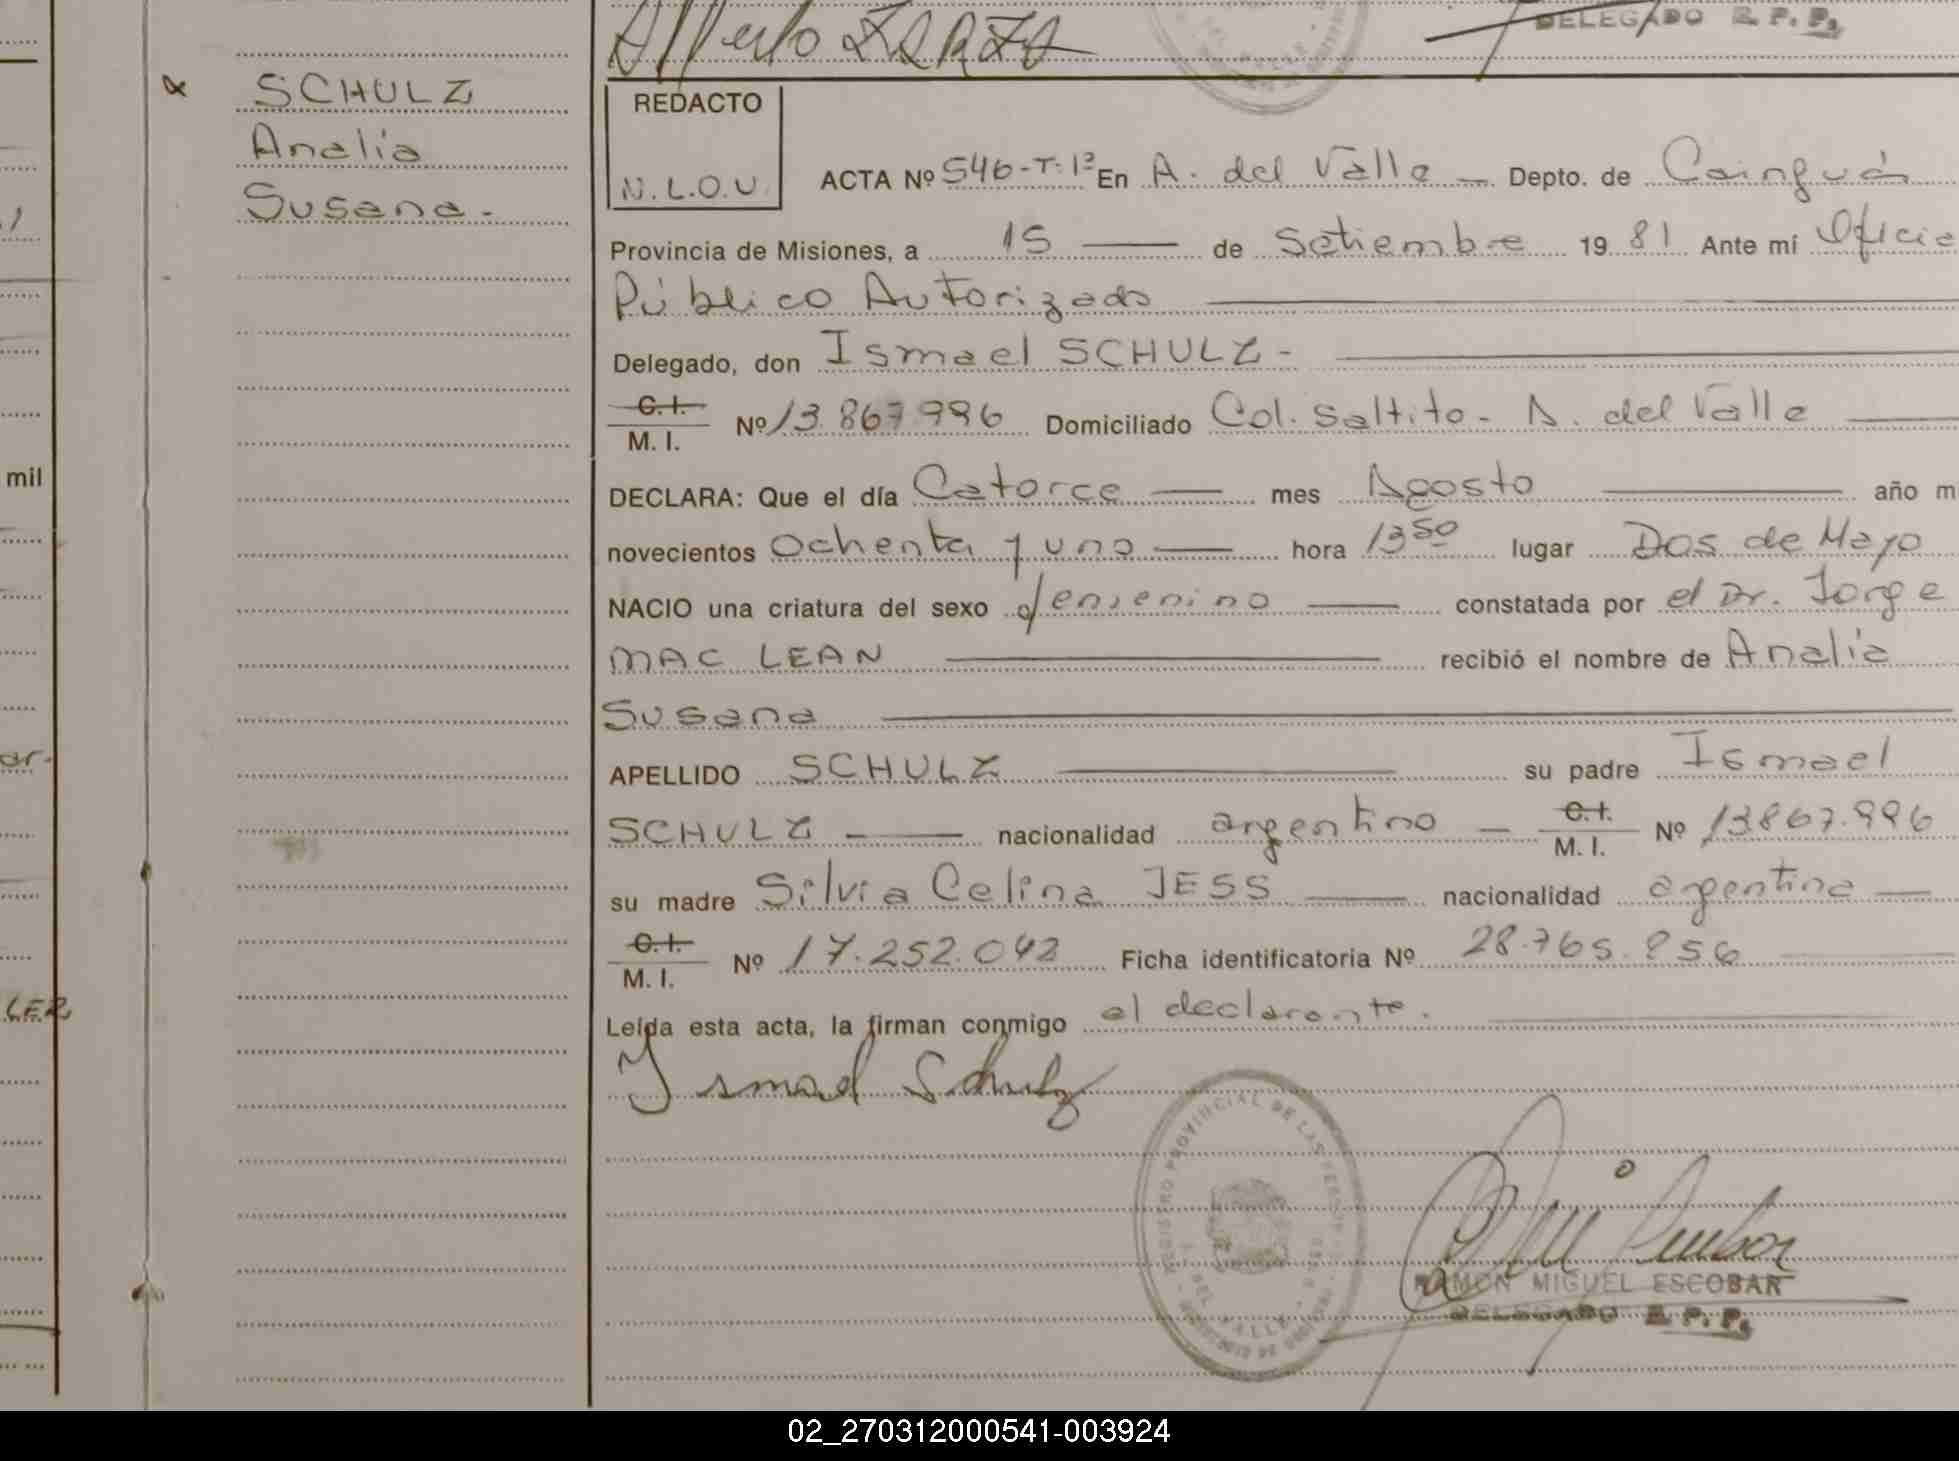 Alberto ZARZA
DELEGADO R. P. P.
SCHULZ
Analia
Susana.-
REDACTO
N.L.O.U.
ACTA Nº 546-T-1º En A. del Valle — Depto. de Cainguás
Provincia de Misiones, a 15 — de Setiembre 1981 Ante mí Oficial
Público Autorizado
Delegado, don Ismael SCHULZ -
C.I.
M. I. Nº 13.867.996 Domiciliado Col. Saltito - A. del Valle
DECLARA: Que el día Catorce — mes Agosto — año m
novecientos Ochenta y uno — hora 13 50 lugar Dos de Mayo
NACIO una criatura del sexo femenino — constatada por el Dr. Jorge
MAC LEAN — recibió el nombre de Analia
Susana
APELLIDO SCHULZ — su padre Ismael
SCHULZ — nacionalidad argentino — C.I. M. I. Nº 13.867.996
su madre Silvia Celina JESS — nacionalidad argentina —
C.I.
M. I. Nº 17.252.042 Ficha identificatoria Nº 28.765.856
Leída esta acta, la firman conmigo el declarante.
Ismael Schulz
REGISTRO PROVINCIAL DE LAS PERSONAS
DEL VALLE
RAMON MIGUEL ESCOBAR
DELEGADO R. P. P.
mil
or.
LER
02_270312000541-003924